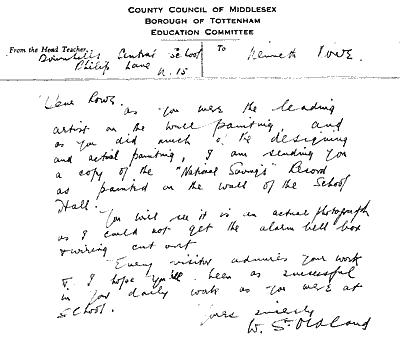 COUNTY COUNCIL OF MIDDLESEX
BOROUGH OF TOTTENHAM
EDUCATION COMMITTEE
From the Head Teacher, To
Downhills Central School Kenneth Rowe.
Philip Lane
N. 15
Dear Rowe.
as you were the leading
artist on the wall painting, and
as you did much of the designing
and actual painting, I am sending you
a copy of the "National Savings Record
as painted on the wall of the School
Hall.
You will see it is an actual photograph
as I could not get the alarm bell box
& wiring cut out
Every visitor admires your work
& I hope you been as successful
in your daily work as you were at
School.
Yours sincerely
W. S.